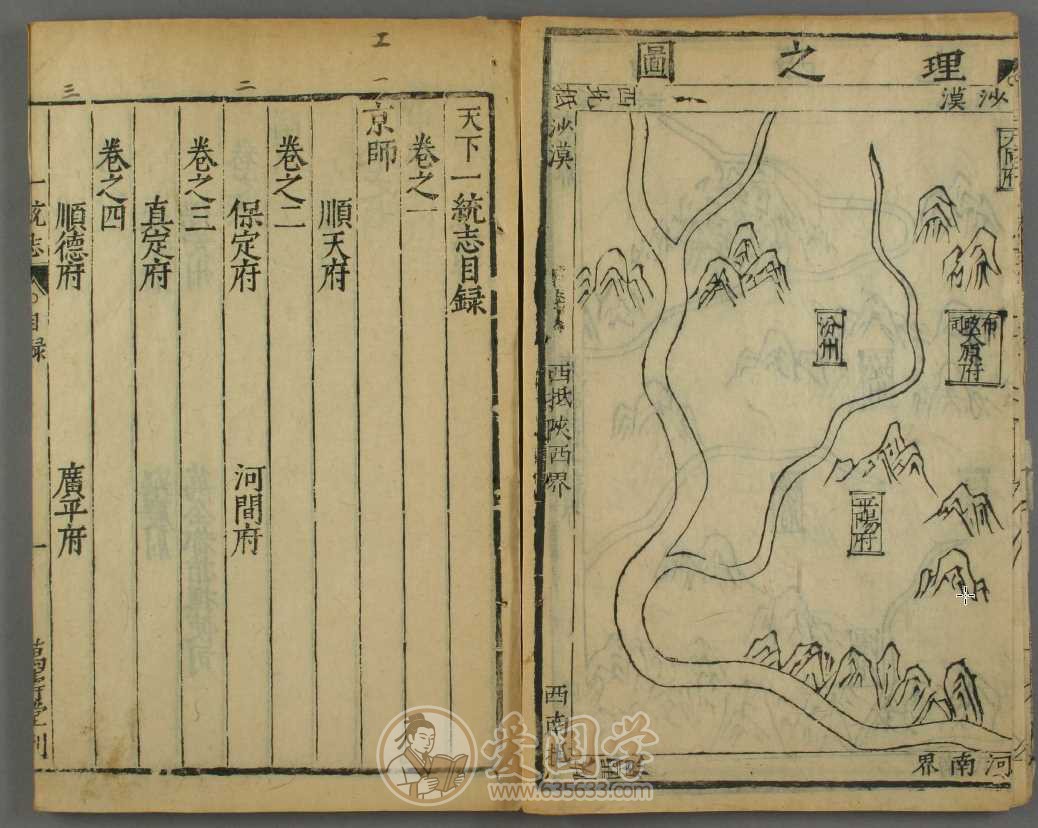 理之圖
沙漠
沙漠
西抵陝西界
河南界
布政司
太原府
汾州
平陽府
天下一統志目録
卷之一
京師
順天府
卷之二
保定府 河間府
卷之三
真定府
卷之四
順德府 廣平府
一統志 目録 一
萬壽堂刊
一
二
三
爱国学
www.635633.com